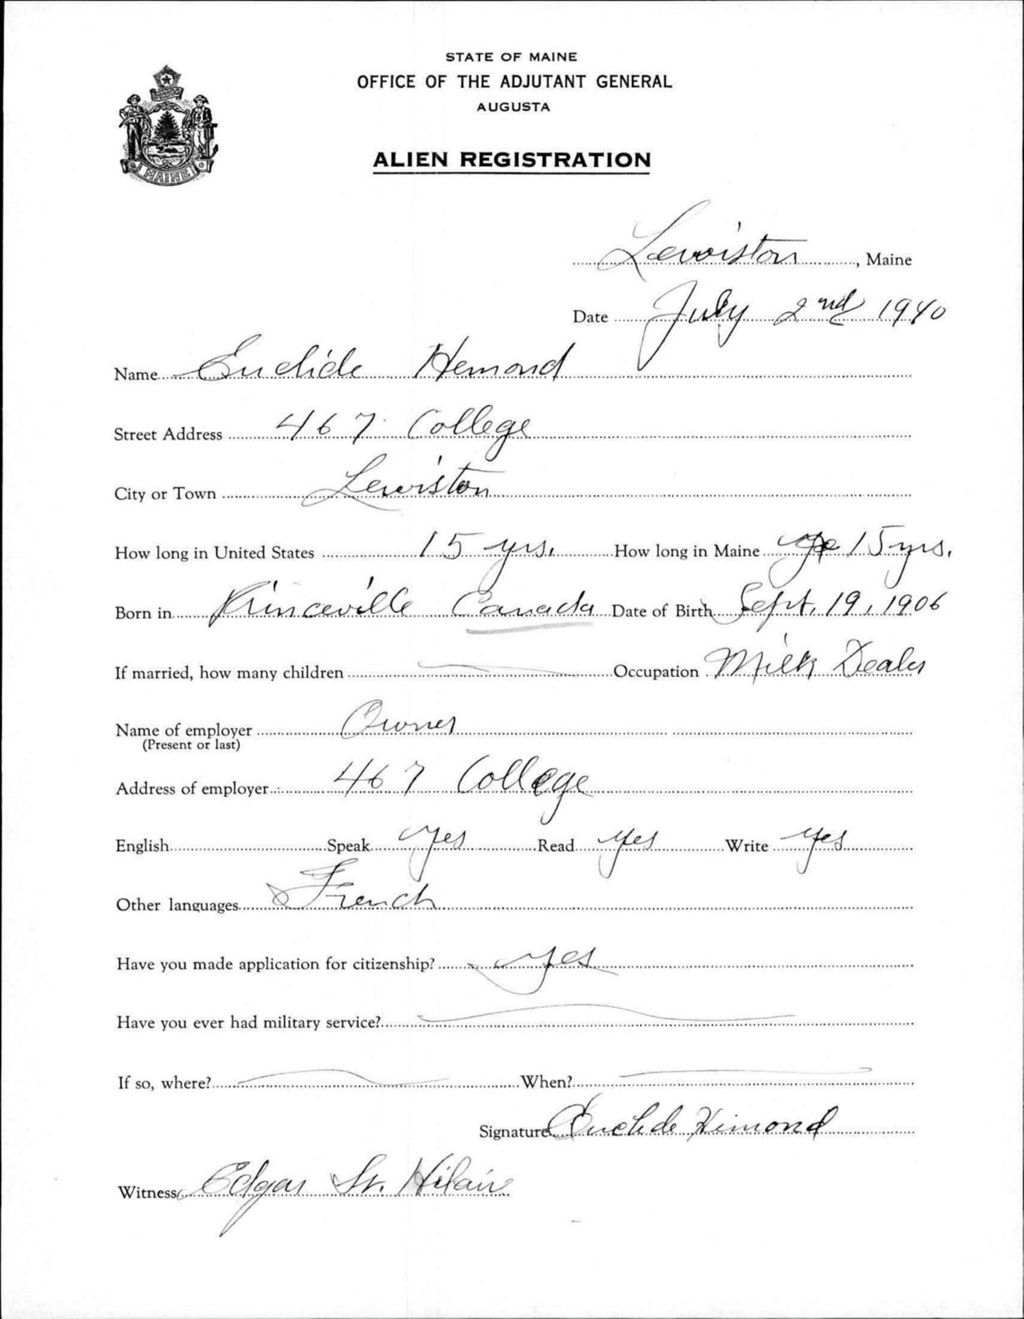 STATE OF MAINE
OFFICE OF THE ADJUTANT GENERAL
AUGUSTA
ALIEN REGISTRATION
MAINE
Lewiston, Maine
Date July 2nd 1940
Name Euclide Hemond
Street Address 467 College
City or Town Lewiston
How long in United States 15 yrs. How long in Maine 15 yrs.
Born in Princeville Canada Date of Birth Sept. 19, 1906
If married, how many children Occupation Milk Dealer
Name of employer Owner
(Present or last)
Address of employer 467 College
English Speak yes Read yes Write yes
Other languages French
Have you made application for citizenship? yes
Have you ever had military service?
If so, where? When?
Signature Euclide Himond
Witness Edgar St. Hilaire